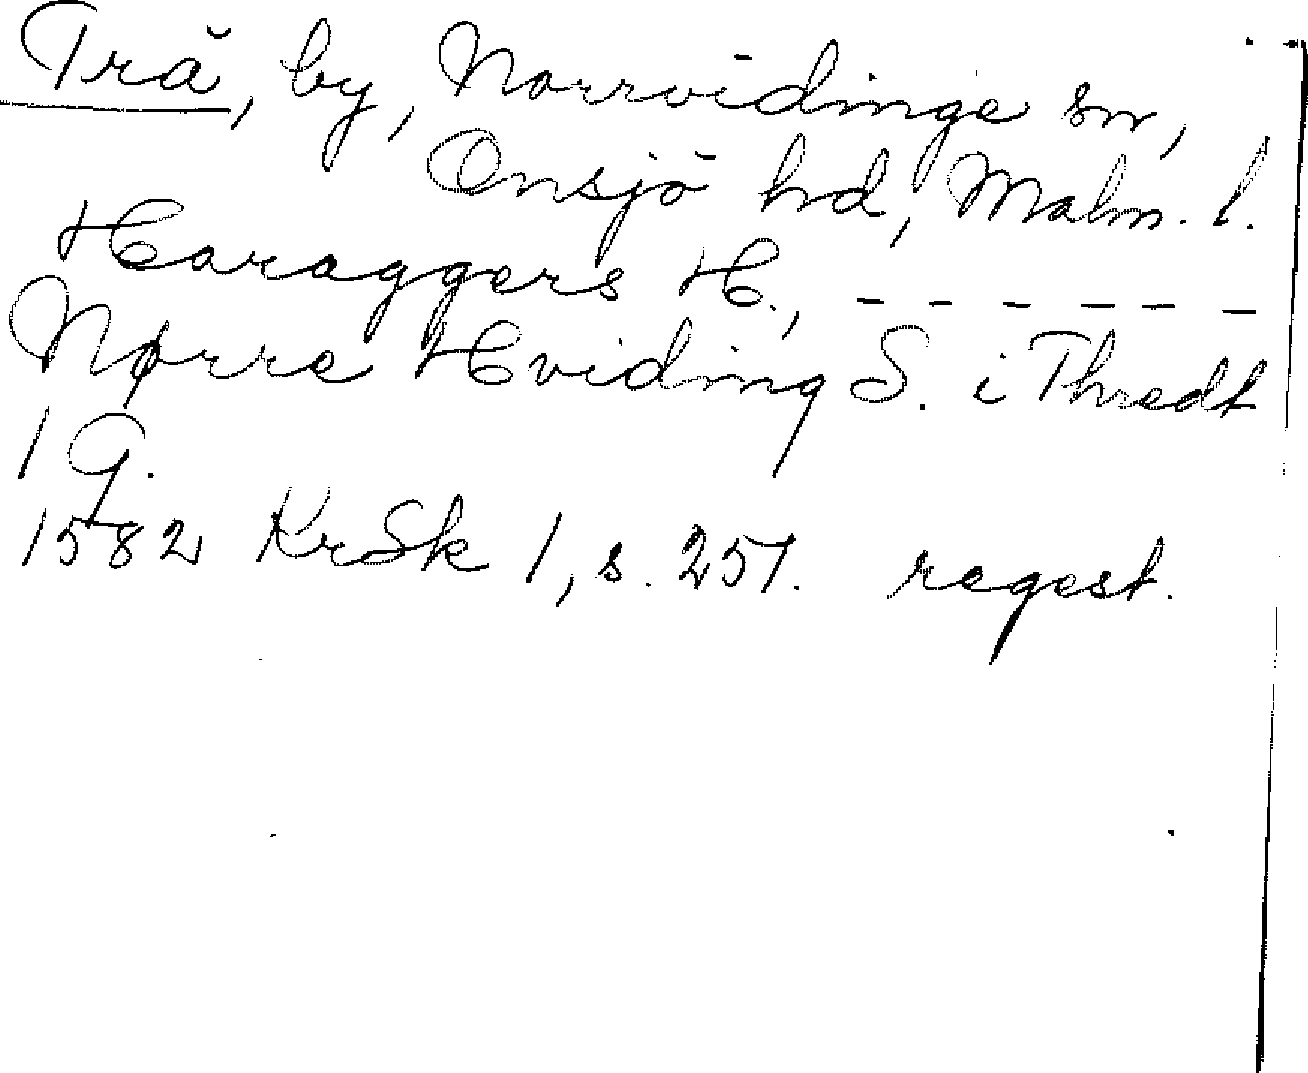 Trä, by, Norrvidinge sn,
Onsjö hd, Malm. l.
Haraggers H., - - - - - -
Nørre Hviding S. i Thredt
1 G.
1582 KrSk 1, s. 251. regest.